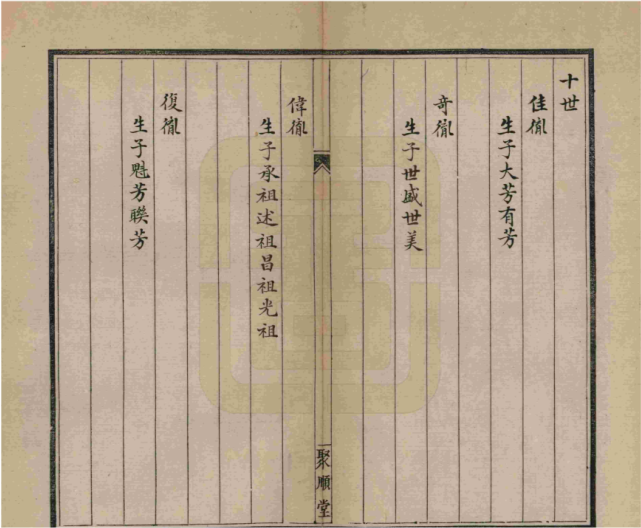 十世
佳胤
生子大芳有芳
奇胤
生子世盛世美
聚順堂
偉胤
生子承祖述祖昌祖光祖
復胤
生子魁芳聨芳